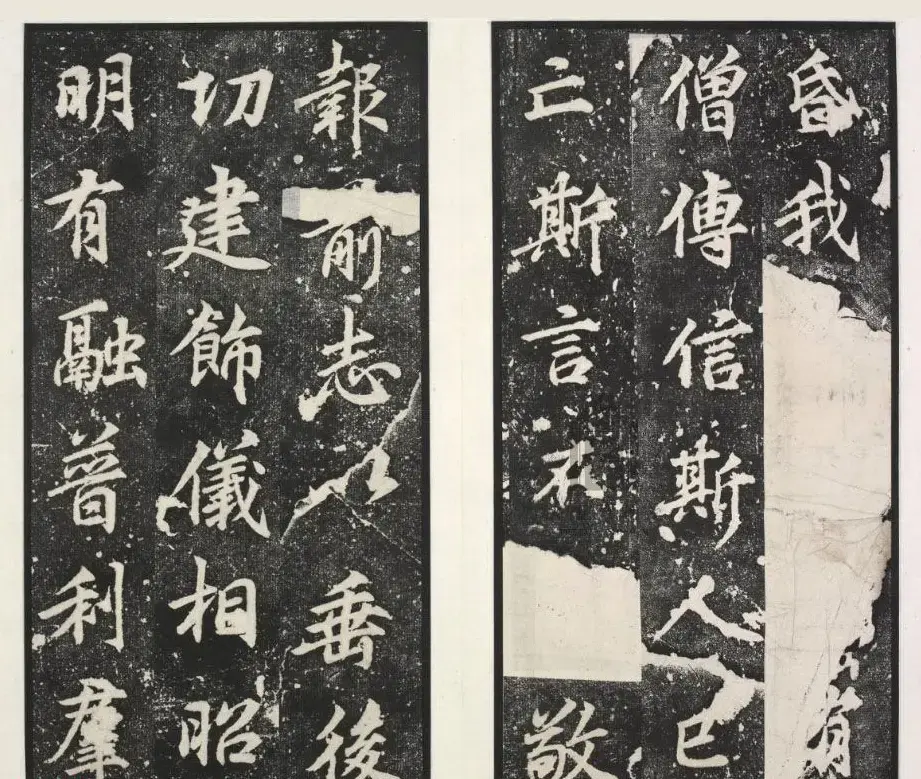 昏我
僧傳信斯人已
亡斯言不敬
報前志以垂後
切建飾儀相昭
明有融普利羣